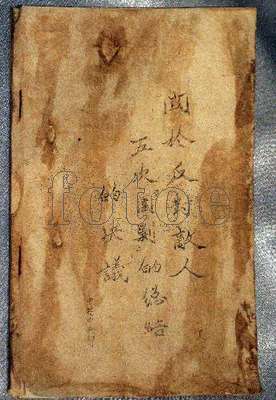 関於反對敵人
五次圍剿的總結
的決議
fotoe